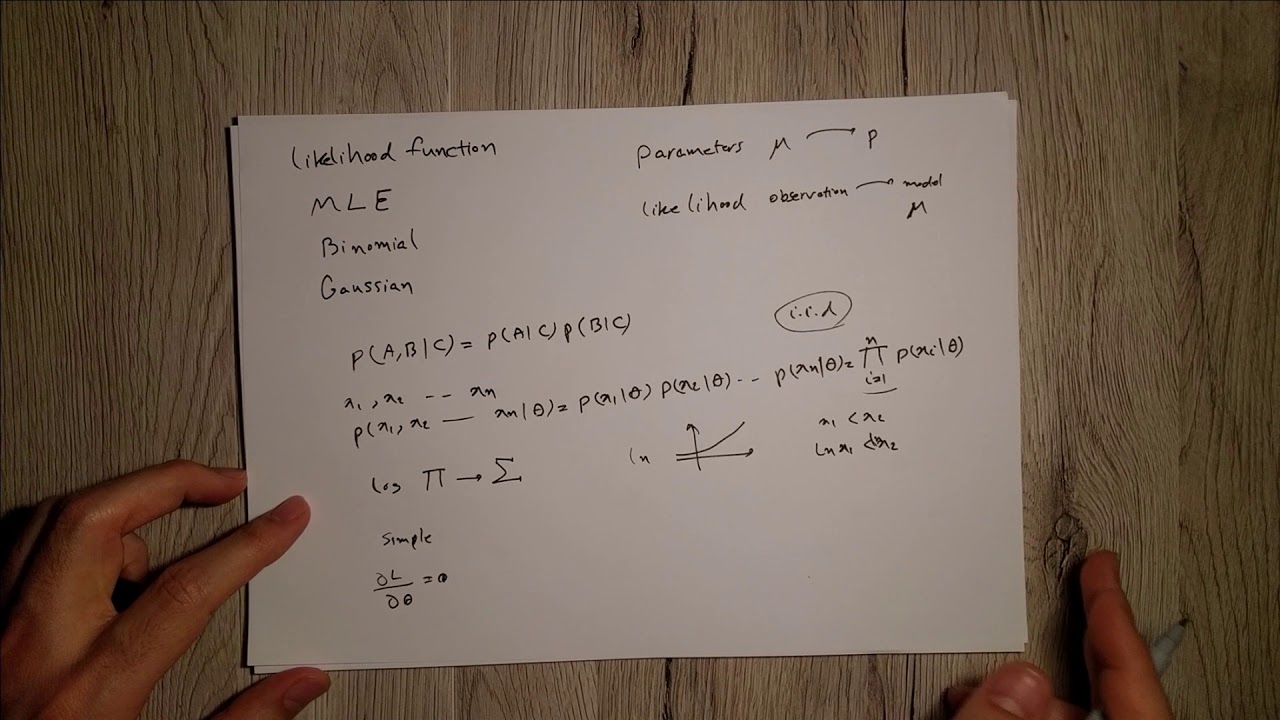 Likelihood function
MLE
Binomial
Gaussian
parameters μ → p
likelihood observation → model
μ
P(A,B|C) = P(A|C) P(B|C)
i.i.d
x₁, x₂ -- xn
P(x₁, x₂ — xn|θ) = P(x₁|θ) P(x₂|θ) -- P(xn|θ) = ∏ⁿᵢ₌₁ P(xᵢ|θ)
ln
x₁ < x₂
Ln x₁ < x₂
Log ∏ → Σ
simple
∂L/∂θ = 0